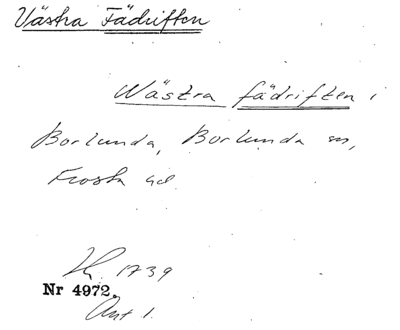 Västra Fädriften
Wästra fädriften i
Borlunda, Borlunda sn,
Frosta hd.
1739
Nr 4972.
Akt 1.